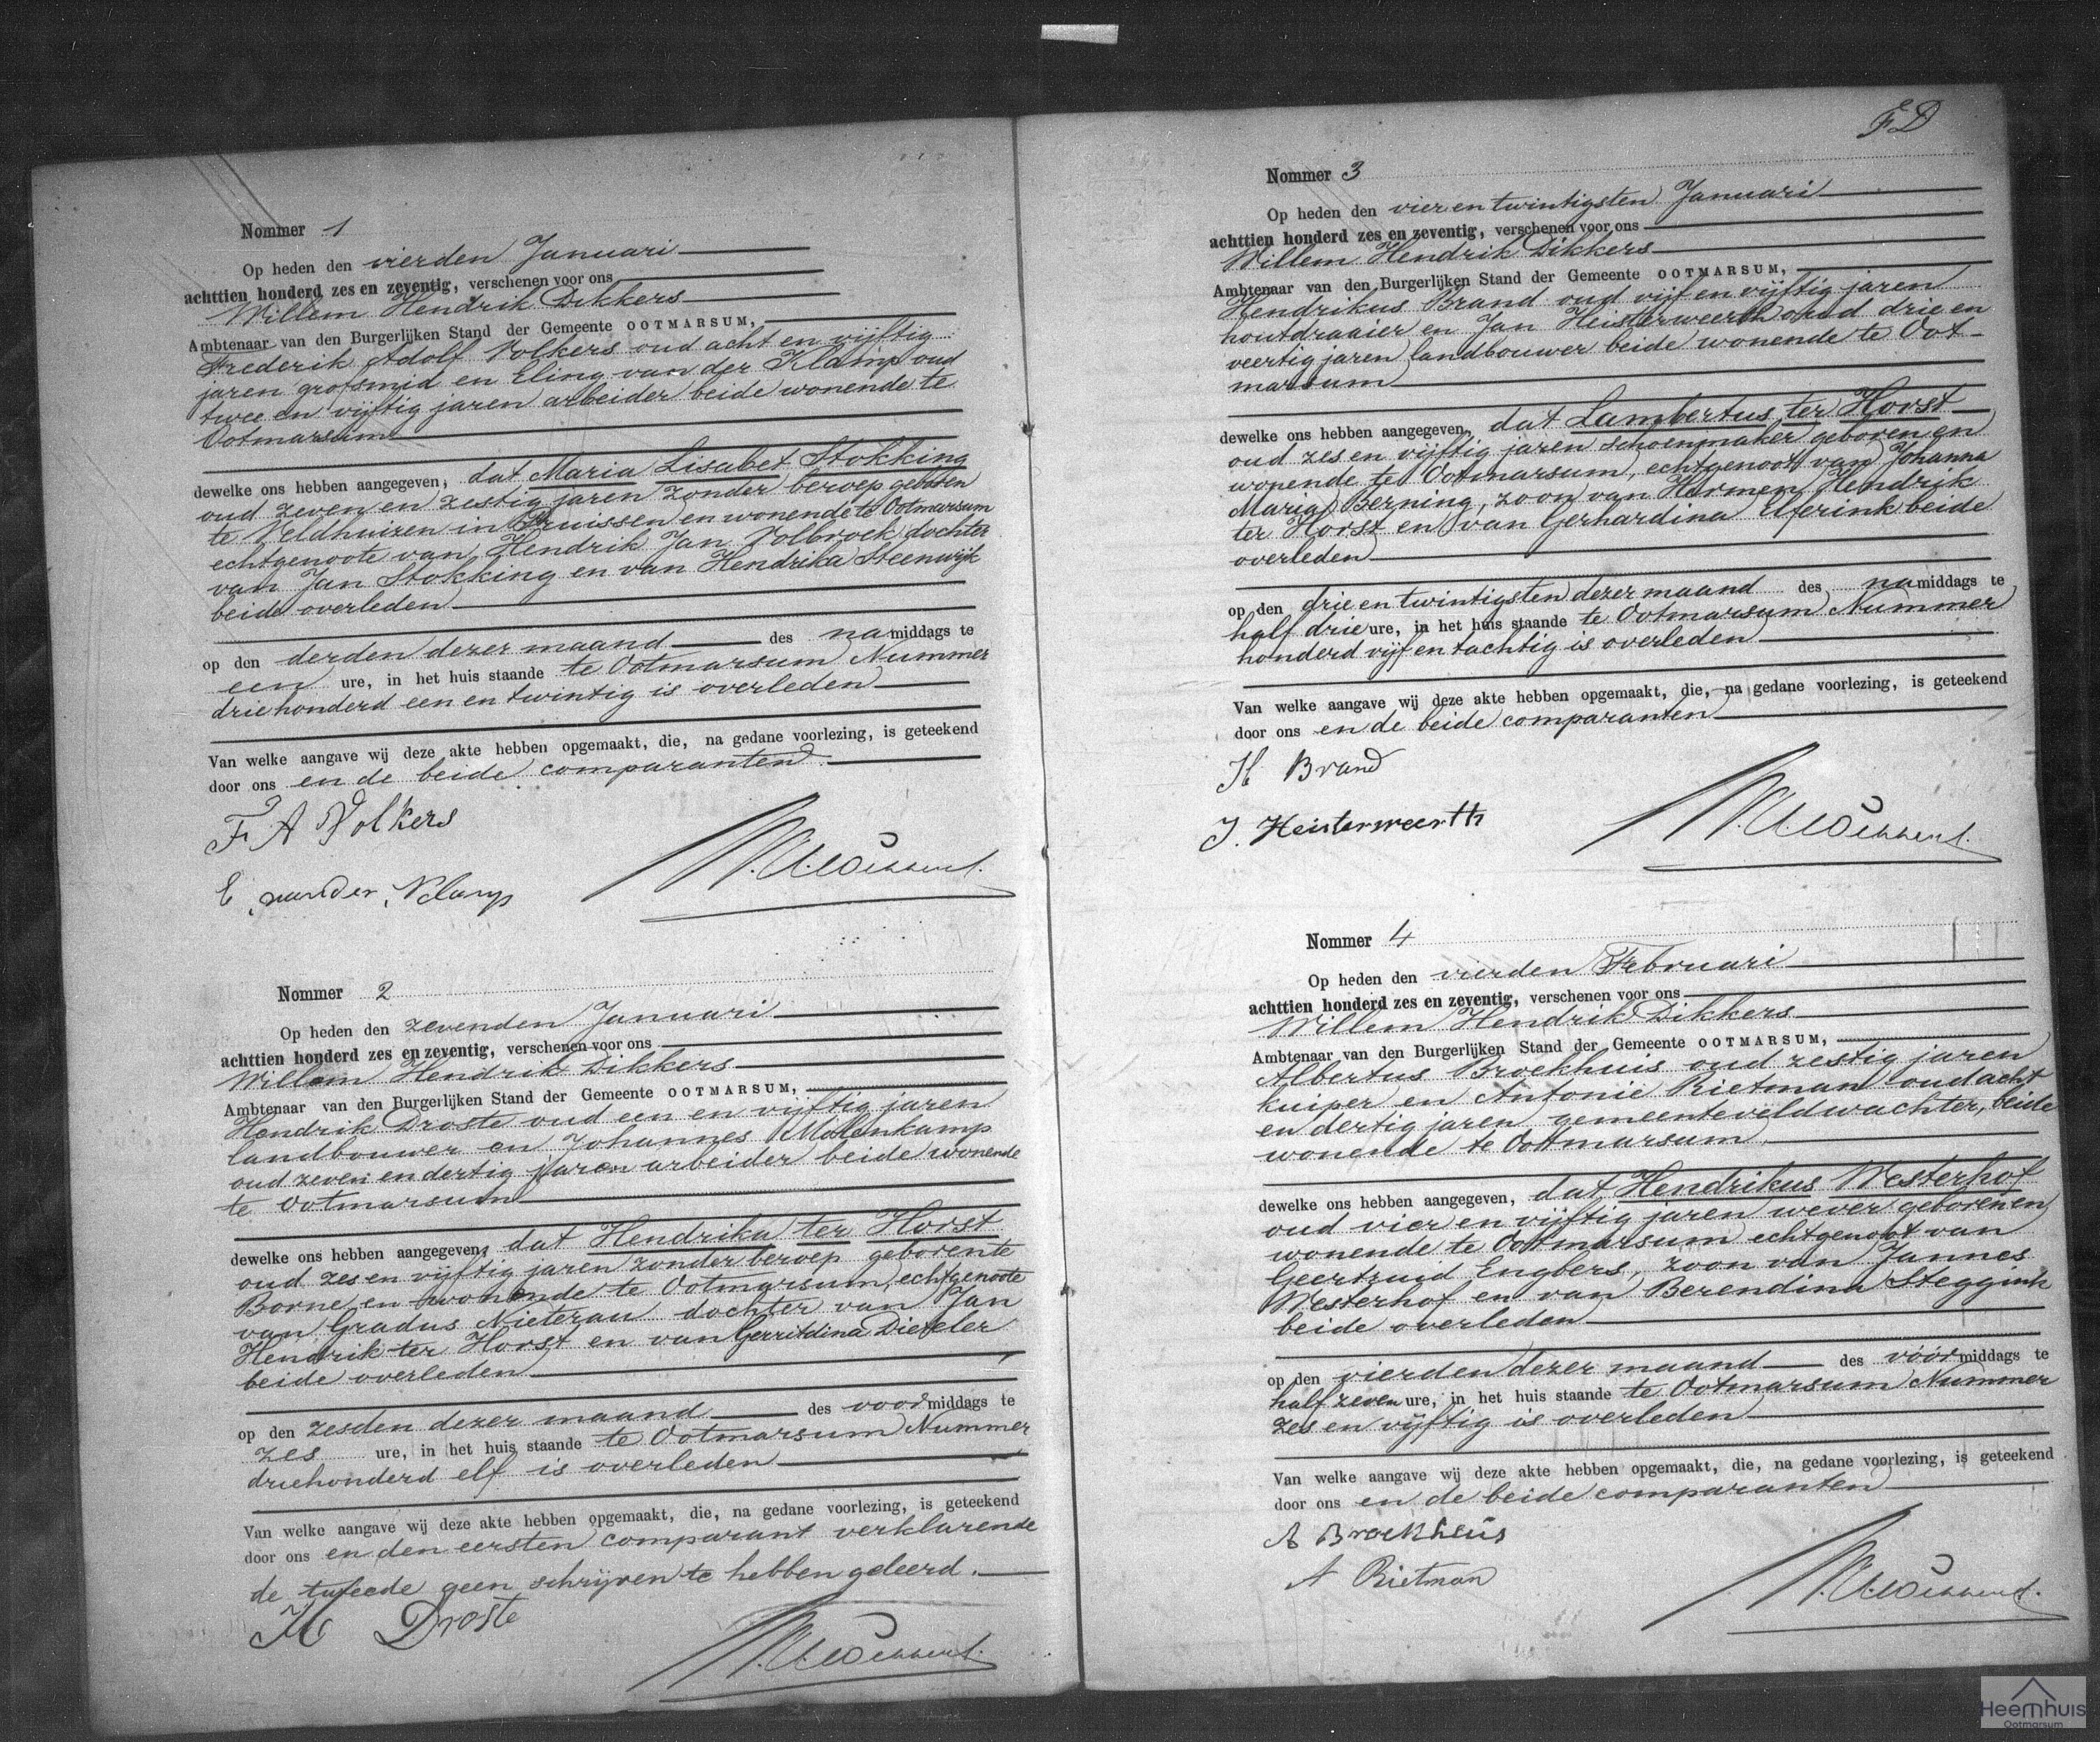 Nommer 1
Op heden den vierden Januari
achttien honderd zes en zeventig, verschenen voor ons
Willem Hendrik Dikkers
Ambtenaar van den Burgerlijken Stand der Gemeente OOTMARSUM,
Frederik Adolf Volkers oud acht en vijftig
jaren grofsmid en Eling van der Klamp oud
twee en vijftig jaren arbeider beide wonende te
Ootmarsum
dewelke ons hebben aangegeven, dat Maria Lisabet Stokking
oud zeven en zestig jaren zonder beroep geboren
te Veldhuizen in Pruissen en wonende te Ootmarsum
echtgenoote van Hendrik Jan Volbroek dochter
van Jan Stokking en van Hendrika Steenwijk
beide overleden
op den derden dezer maand des namiddags te
een ure, in het huis staande te Ootmarsum Nummer
driehonderd een en twintig is overleden
Van welke aangave wij deze akte hebben opgemaakt, die, na gedane voorlezing, is geteekend
door ons en de beide comparanten
F A Volkers
E van der Klamp
Nommer 2
Op heden den zevenden Januari
achttien honderd zes en zeventig, verschenen voor ons
Willem Hendrik Dikkers
Ambtenaar van den Burgerlijken Stand der Gemeente OOTMARSUM,
Hendrik Droste oud een en vijftig jaren
landbouwer en Johannes Molenkamp
oud zeven en dertig jaren arbeider beide wonende
te Ootmarsum
dewelke ons hebben aangegeven, dat Hendrika ter Horst
oud zes en vijftig jaren zonder beroep geboren te
Borne en wonende te Ootmarsum, echtgenoote
van Gradus Nieterau dochter van Jan
Hendrik ter Horst en van Gerritdina
beide overleden
op den zesden dezer maand des voormiddags te
zes ure, in het huis staande te Ootmarsum Nummer
driehonderd elf is overleden
Van welke aangave wij deze akte hebben opgemaakt, die, na gedane voorlezing, is geteekend
door ons en den eersten comparant verklarende
de tweede geen schrijven te hebben geleerd.
H Droste
F D
Nommer 3
Op heden den vier en twintigsten Januari
achttien honderd zes en zeventig, verschenen voor ons
Willem Hendrik Dikkers
Ambtenaar van den Burgerlijken Stand der Gemeente OOTMARSUM,
Hendrikus Brand oud vijf en vijftig jaren
houtdraaier en Jan Heisterweerth oud drie en
veertig jaren landbouwer beide wonende te Oot-
marsum
dewelke ons hebben aangegeven, dat Lambertus ter Horst
oud zes en vijftig jaren schoenmaker geboren en
wonende te Ootmarsum, echtgenoot van Johanna
Maria Berning, zoon van Harmen Hendrik
ter Horst en van Gerhardina Elferink beide
overleden
op den drie en twintigsten dezer maand des namiddags te
half drie ure, in het huis staande te Ootmarsum Nummer
honderd vijf en tachtig is overleden
Van welke aangave wij deze akte hebben opgemaakt, die, na gedane voorlezing, is geteekend
door ons en de beide comparanten
H Brand
J. Heisterweerth
Nommer 4
Op heden den vierden Februari
achttien honderd zes en zeventig, verschenen voor ons
Willem Hendrik Dikkers
Ambtenaar van den Burgerlijken Stand der Gemeente OOTMARSUM,
Albertus Broekhuis oud zestig jaren
kuiper en Antonie Rietman oud acht
en dertig jaren gemeenteveldwachter, beide
wonende te Ootmarsum
dewelke ons hebben aangegeven, dat Hendrikus Westerhof
oud vier en vijftig jaren wever geboren en
wonende te Ootmarsum echtgenoot van
Geertruid Engbers, zoon van Jannes
Westerhof en van Berendina Steggink
beide overleden
op den vierden dezer maand des vóórmiddags te
half zeven ure, in het huis staande te Ootmarsum Nummer
zes en vijftig is overleden
Van welke aangave wij deze akte hebben opgemaakt, die, na gedane voorlezing, is geteekend
door ons en de beide comparanten
A Broekheus
A Rietman
Heemhuis
Ootmarsum